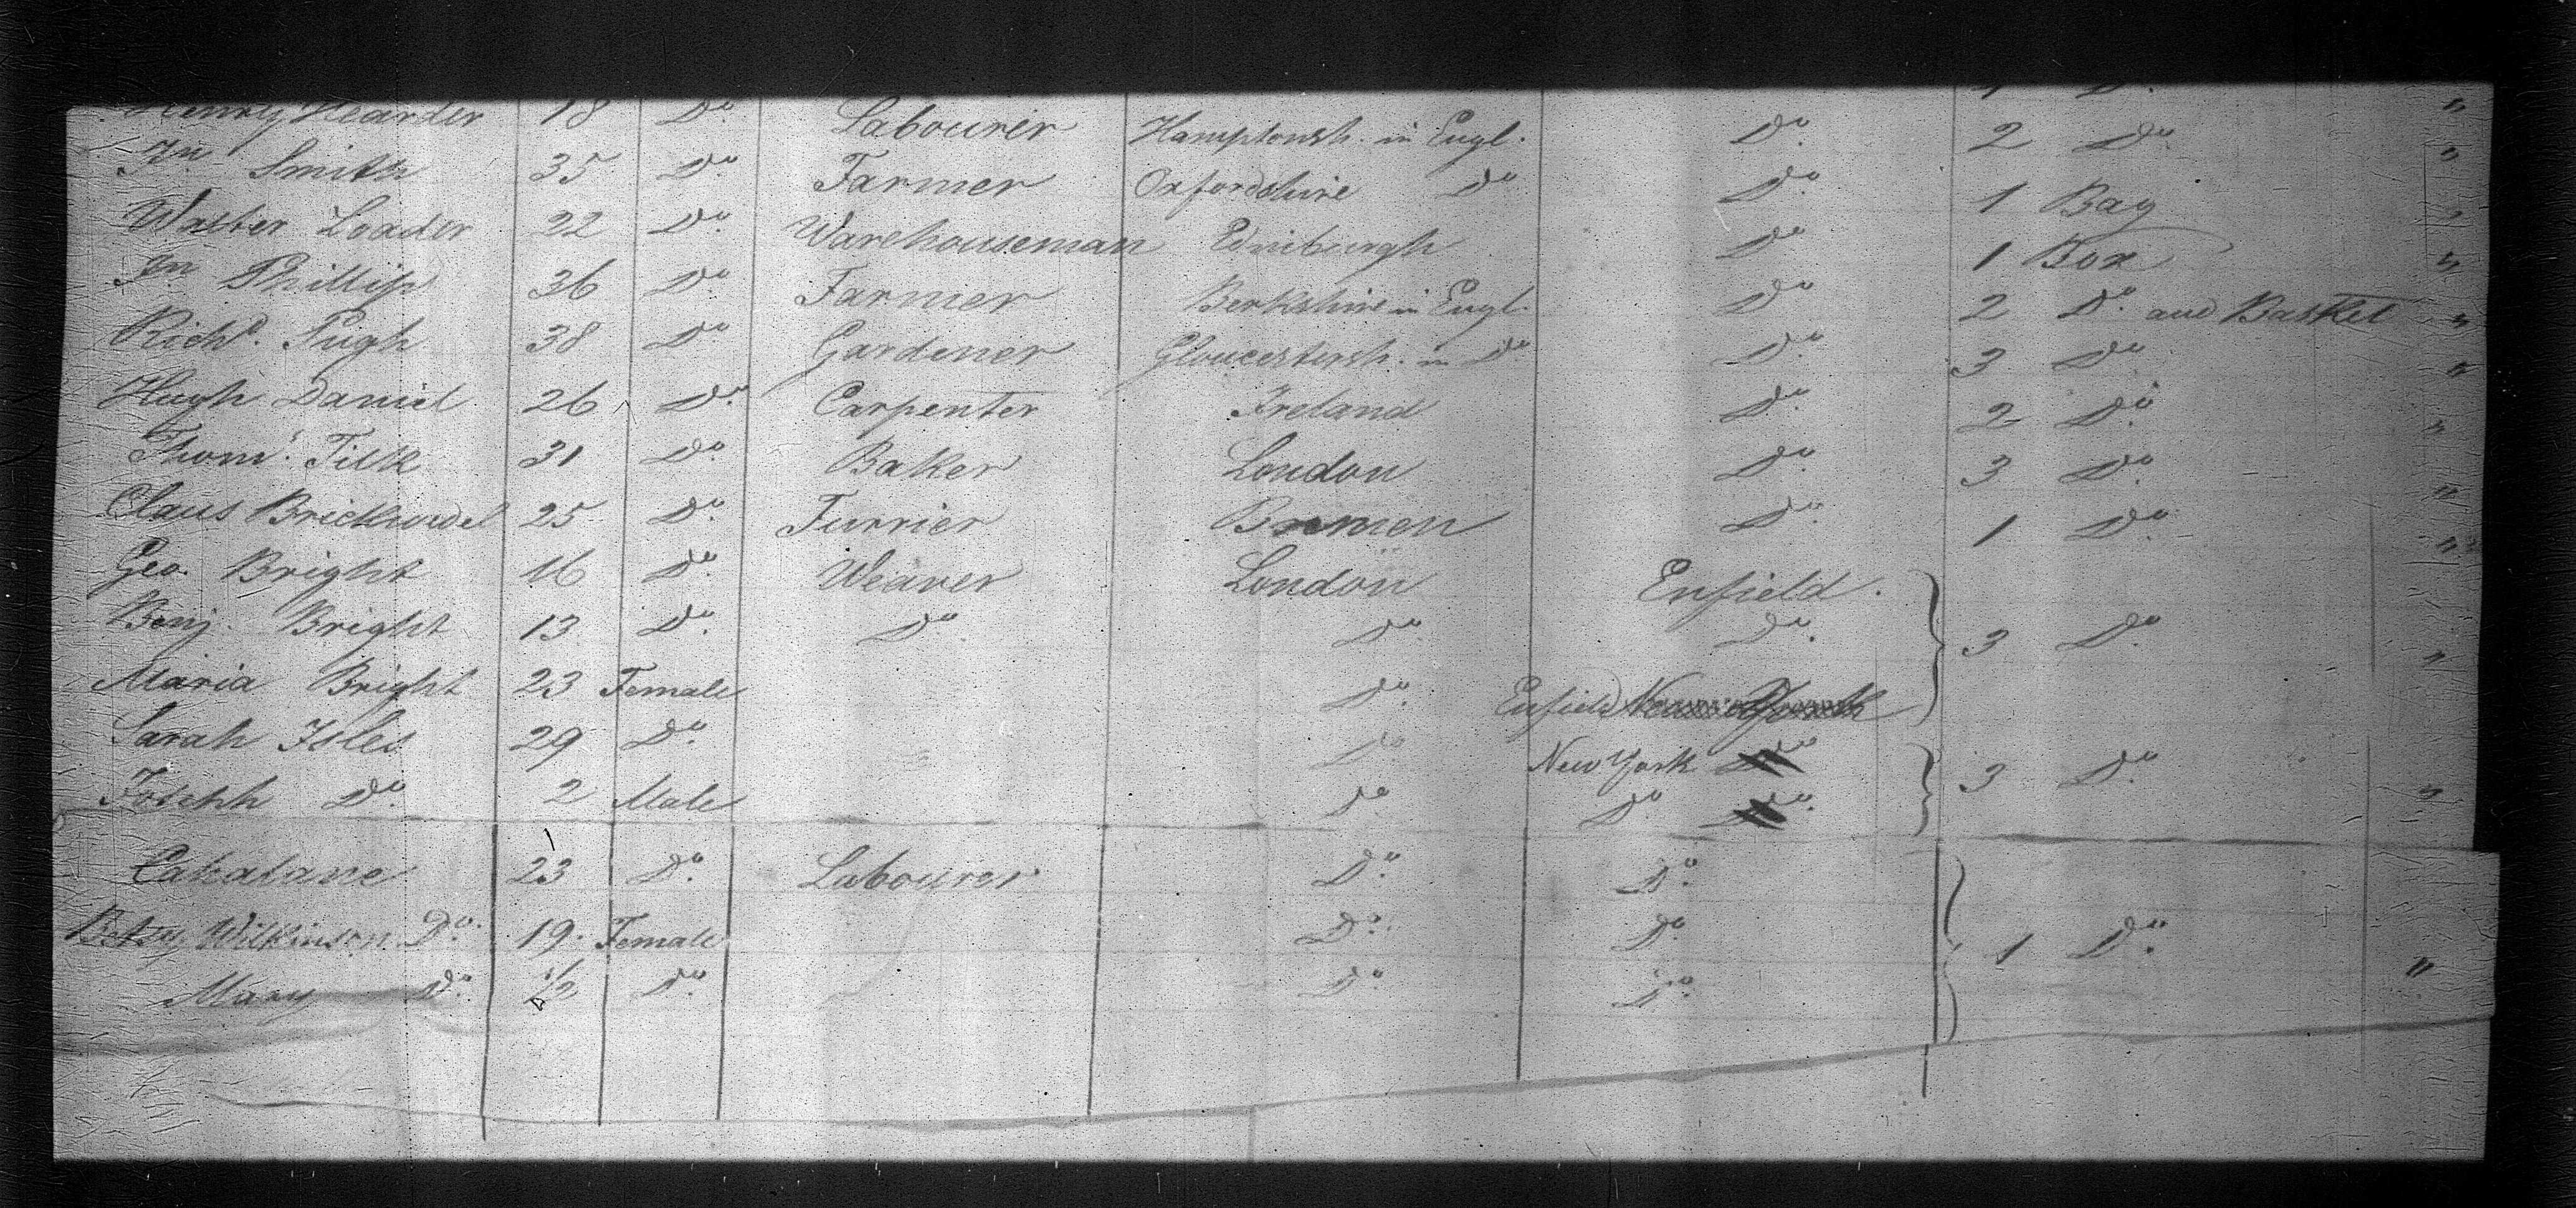 Henry Hearder 18 Do. Labourer Hamptonsh. in Engl. Do. 2 Do. "
Jn. Smith 35 Do. Farmer Oxfordshire Do. Do. 1 Bag "
Walter Loader 22 Do. Warehouseman Edinburgh Do. 1 Box "
Jn. Phillips 36 Do. Farmer Berkshire in Engl. Do. 2 Do. and Basket "
Richd. Pugh 38 Do. Gardener Gloucestersh. in Do. Do. 3 Do. "
Hugh Daniel 26 Do. Carpenter Ireland Do. 2 Do. "
Thoms. Tilk 31 Do. Baker London Do. 3 Do. "
Claus 25 Do. Furrier Bremen Do. 1 Do. "
Geo. Bright 16 Do. Weaver London Enfield.
Benj. Bright 13 Do. Do. Do. Do. 3 Do. "
Maria Bright 23 Female Do. Enfield New York
Sarah Isles 29 Do. Do. New York Do. 3 Do. "
Joseph Do. 2 Male Do. Do. Do.
23 Do. Labourer Do. Do.
Betsy Wilkinson Do. 19. Female Do. Do. 1 Do. "
Mary Do. 1/2 Do. Do. Do.